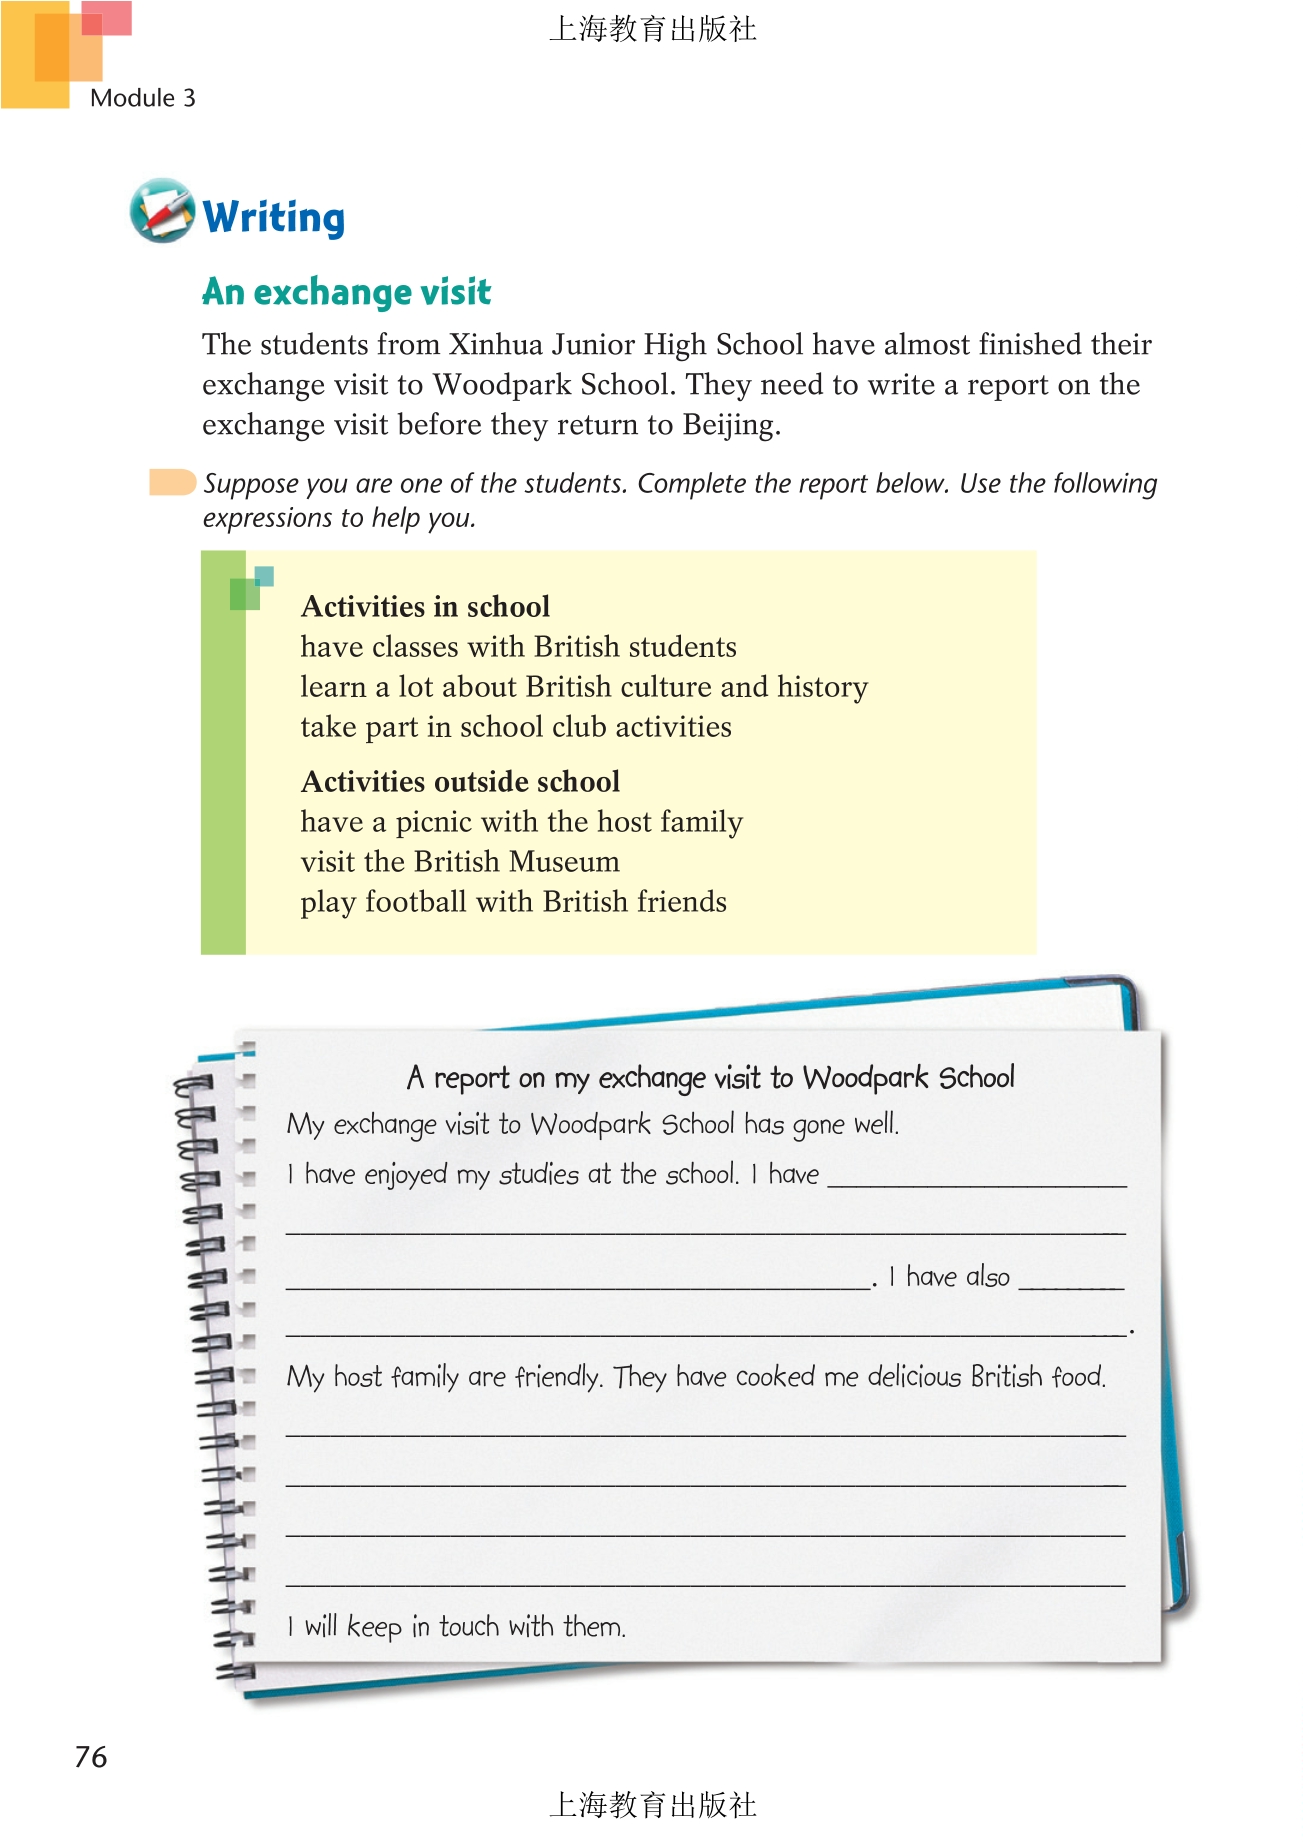 上海教育出版社
Module 3
Writing
An exchange visit
The students from Xinhua Junior High School have almost finished their
exchange visit to Woodpark School. They need to write a report on the
exchange visit before they return to Beijing.
Suppose you are one of the students. Complete the report below. Use the following
expressions to help you.
Activities in school
have classes with British students
learn a lot about British culture and history
take part in school club activities
Activities outside school
have a picnic with the host family
visit the British Museum
play football with British friends
A report on my exchange visit to Woodpark School
My exchange visit to Woodpark School has gone well.
I have enjoyed my studies at the school. I have ____________________
____________________
____________________. I have also ________
____________________.
My host family are friendly. They have cooked me delicious British food.
____________________
____________________
____________________
____________________
I will keep in touch with them.
76
上海教育出版社